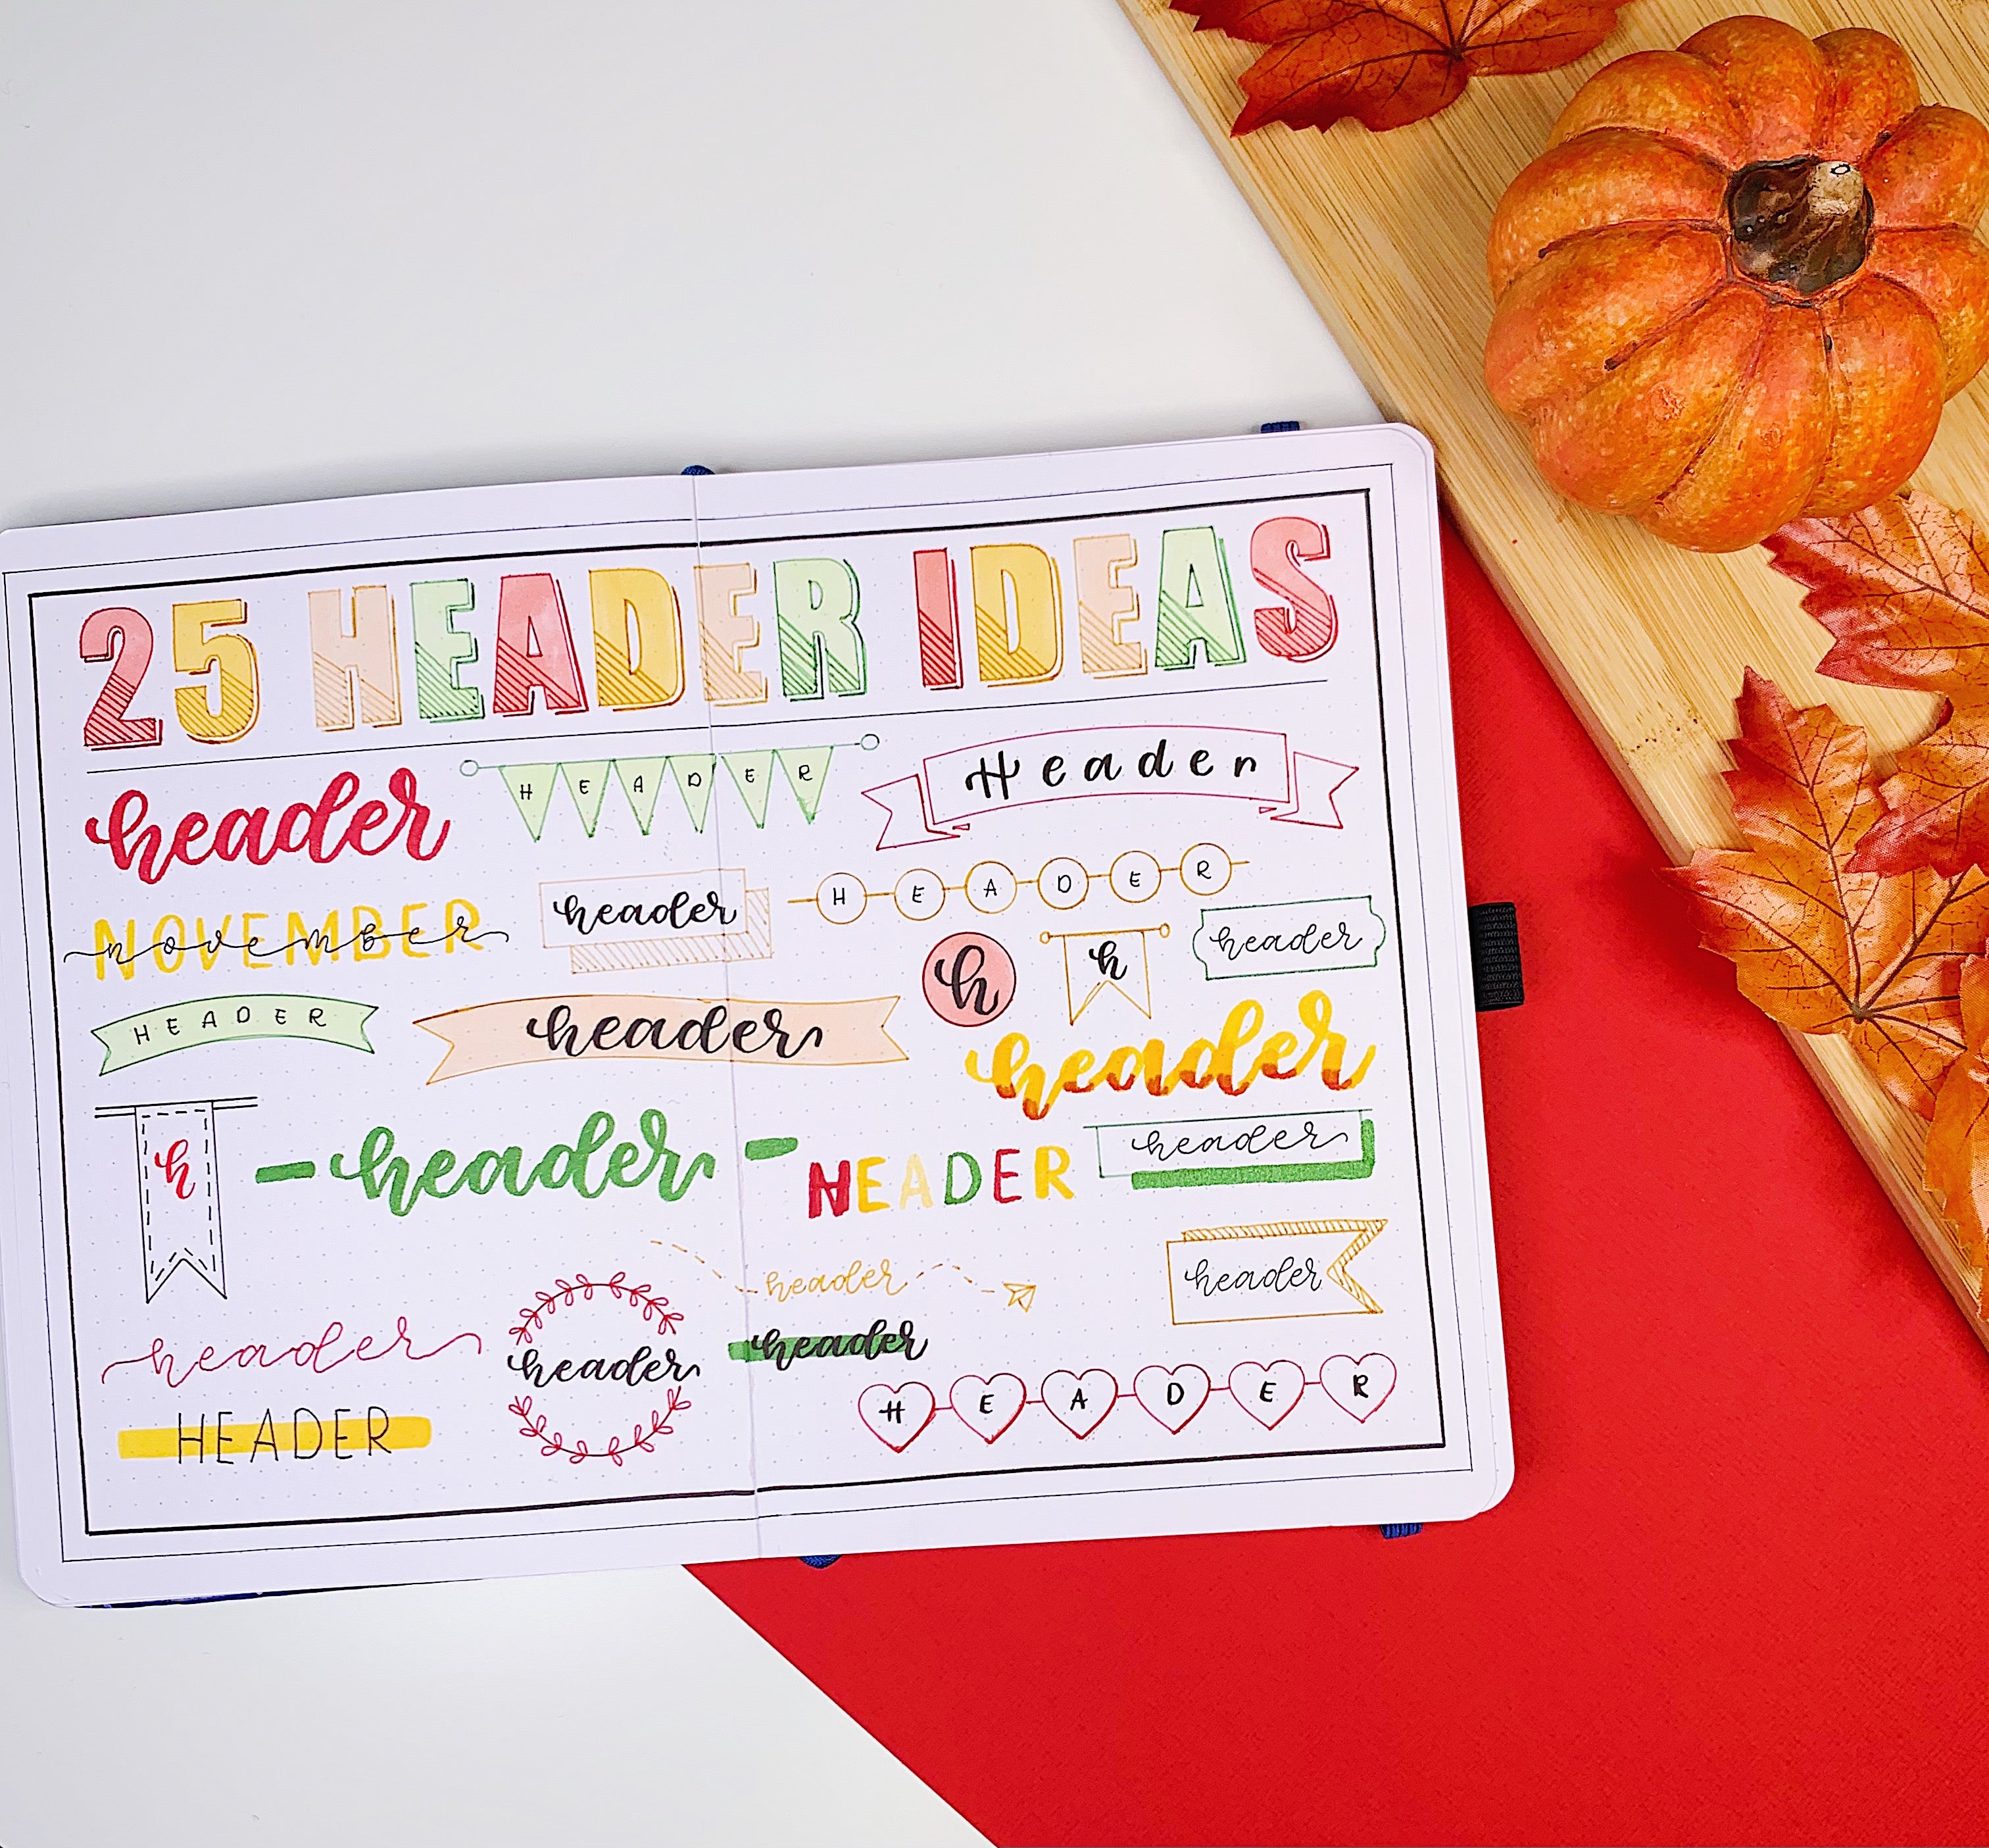 25 HEADER IDEAS
header
HEADER
Header
NOVEMBER
november
header
HEADER
h
h
header
HEADER
header
header
h
- header -
HEADER
header
header
header
header
header
header
HEADER
HEADER